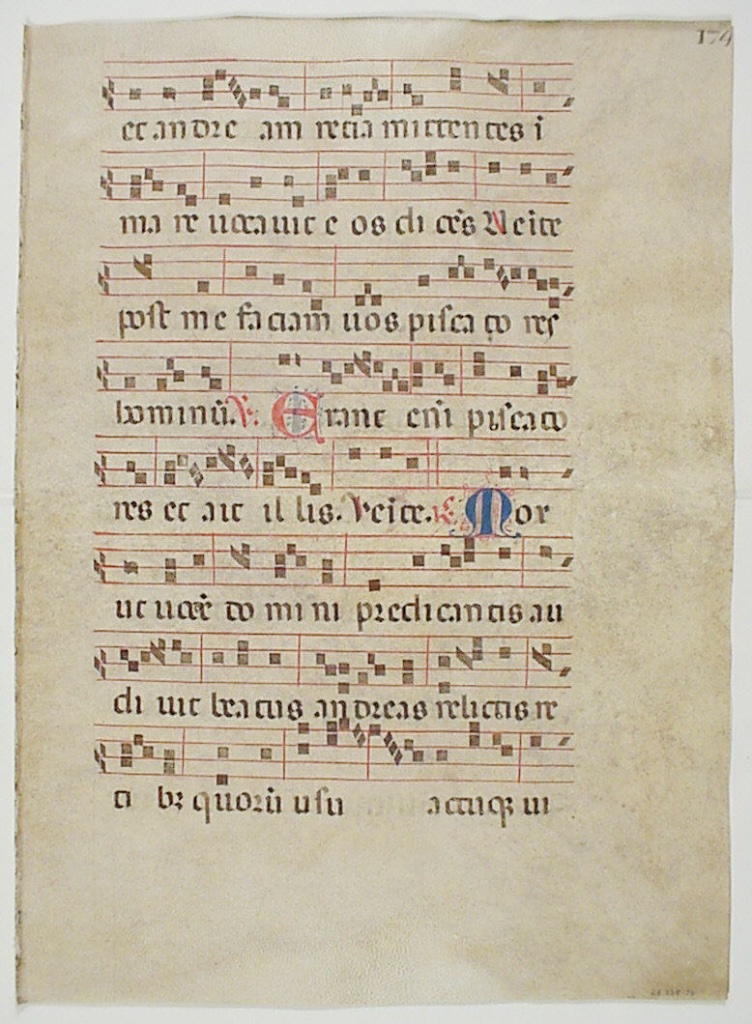 179
et an dre am recia mittentes i
ma re uocauit e os di cēs Ueite
post me faciam uos pisca to res
hominū. ℣. Erant eni pisca to
res et ait il lis. Veite. ℟. Mox
ut uocē do mi ni predicantis au
di uit beatus an dreas relictis re
ti bꝫ quorū usu actuqꝫ ui